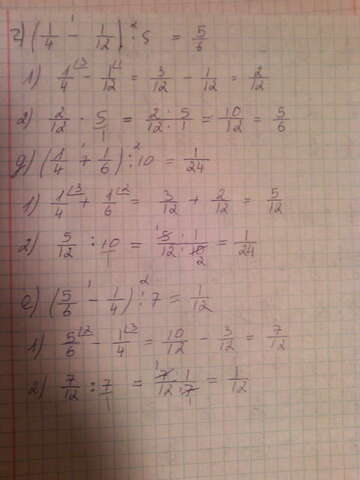 г) (1/4 - 1/12) : 5 = 5/6
1) 1/4 - 1/12 = 3/12 - 1/12 = 2/12
2) 2/12 · 5/1 = 2·5/12·1 = 10/12 = 5/6
д) (1/4 + 1/6) : 10 = 1/24
1) 1/4 + 1/6 = 3/12 + 2/12 = 5/12
2) 5/12 : 10/1 = 5·1/12·10 = 1/24
е) (5/6 - 1/4) : 7 = 1/12
1) 5/6 - 1/4 = 10/12 - 3/12 = 7/12
2) 7/12 : 7/1 = 7·1/12·7 = 1/12